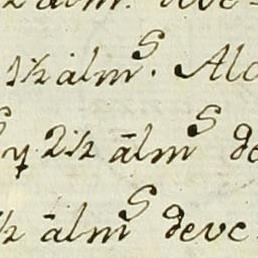 1½ alm^s. Alc
y 2½ ãlm^s de
½ ãlm^s deve